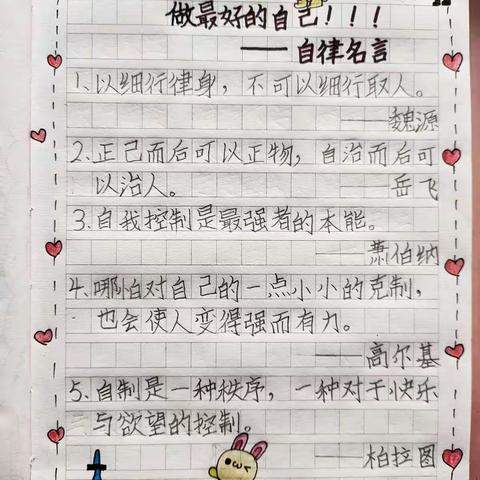 做最好的自己!!!
——自律名言
1.以细行律身，不可以细行取人。
——魏源
2.正己而后可以正物，自治而后可
以治人。 ——岳飞
3.自我控制是最强者的本能。
——萧伯纳
4.哪怕对自己的一点小小的克制，
也会使人变得强而有力。
——高尔基
5.自制是一种秩序，一种对于快乐
与欲望的控制。
——柏拉图